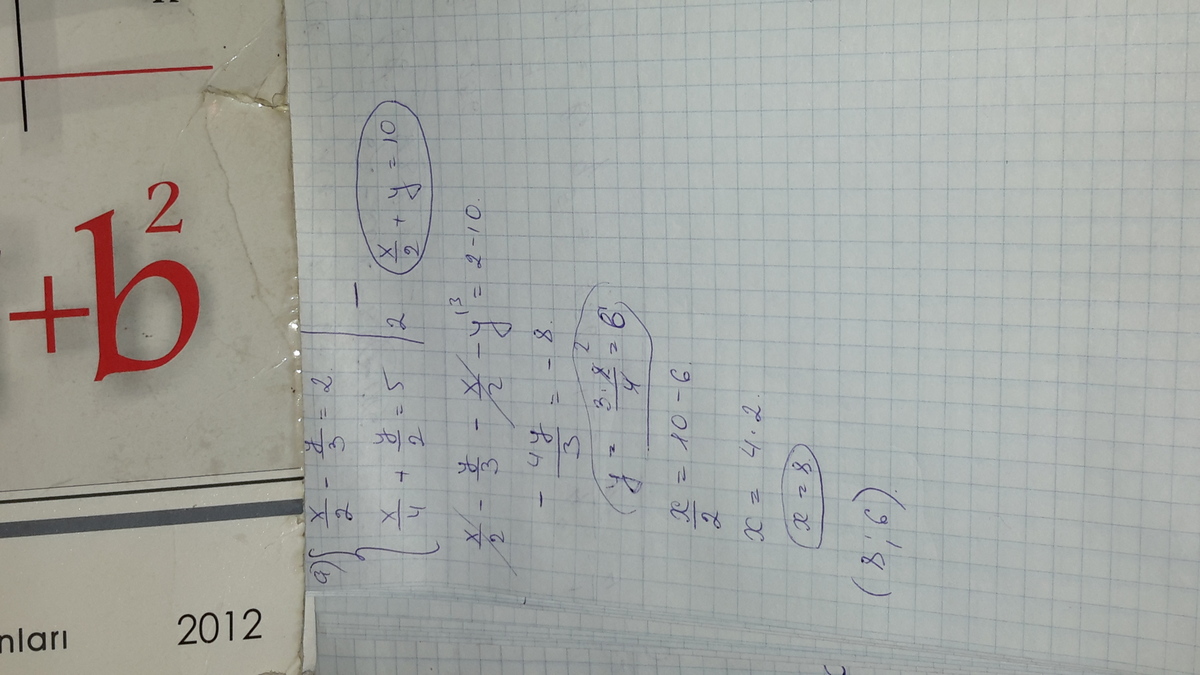 +b²
nları
2012
a) { x/2 - y/3 = 2
x/4 + y/2 = 5 | 2 - x/2 + y = 10
x/2 - y/3 - x/2 - y^13 = 2-10.
- 4y/3 = - 8.
y = 3·8^2/4 = 6
x/2 = 10 - 6.
x = 4·2.
x = 8
(8; 6).